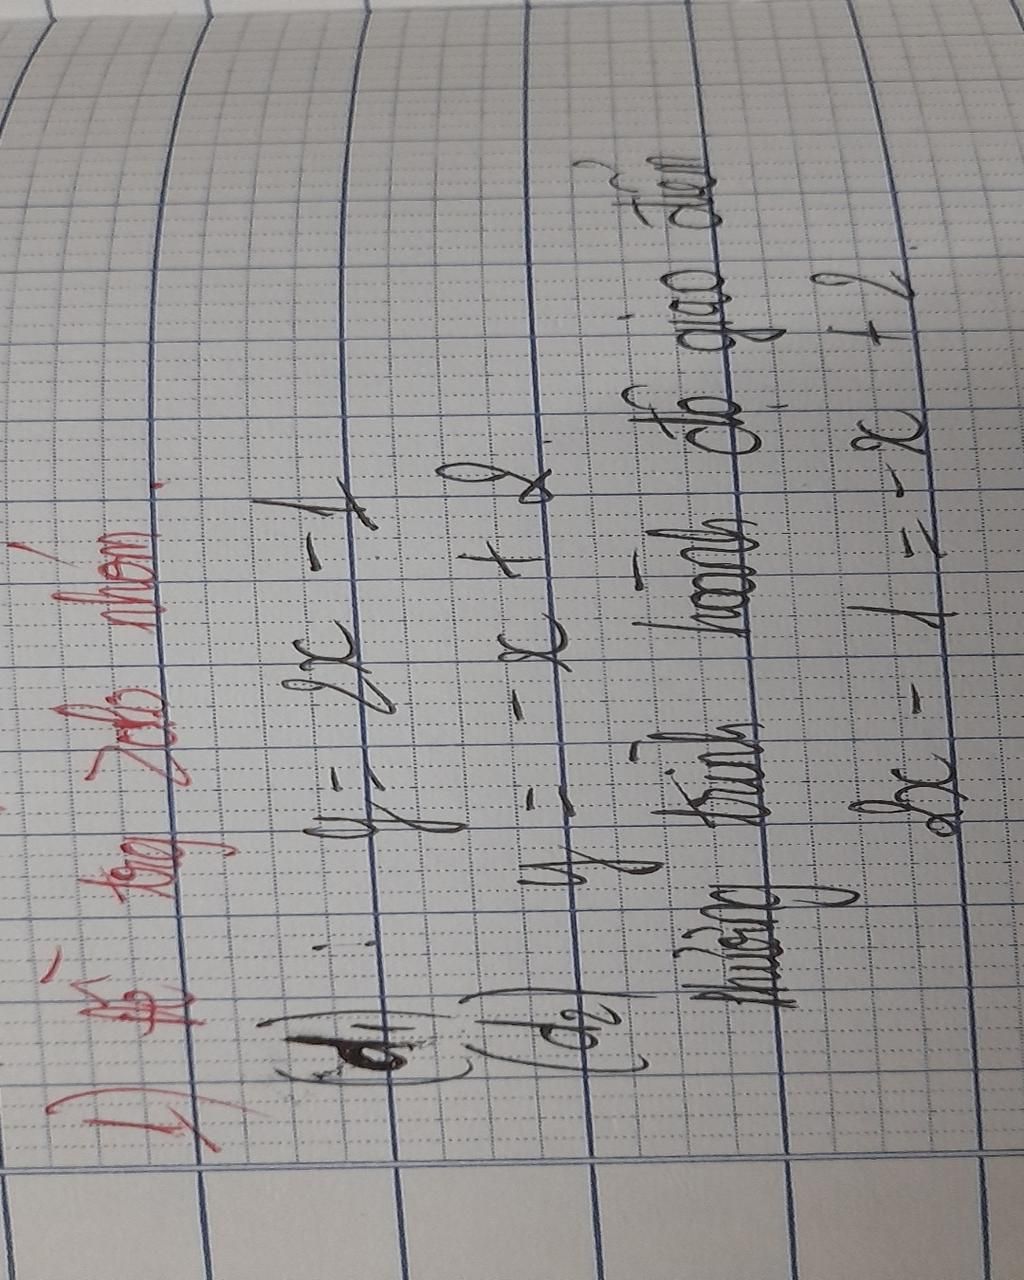 1) nhóm.
(d1) : y = 2x - 1
(d2) y = - x + 2
Phương trình hoành độ giao điểm
2x - 1 = - x + 2